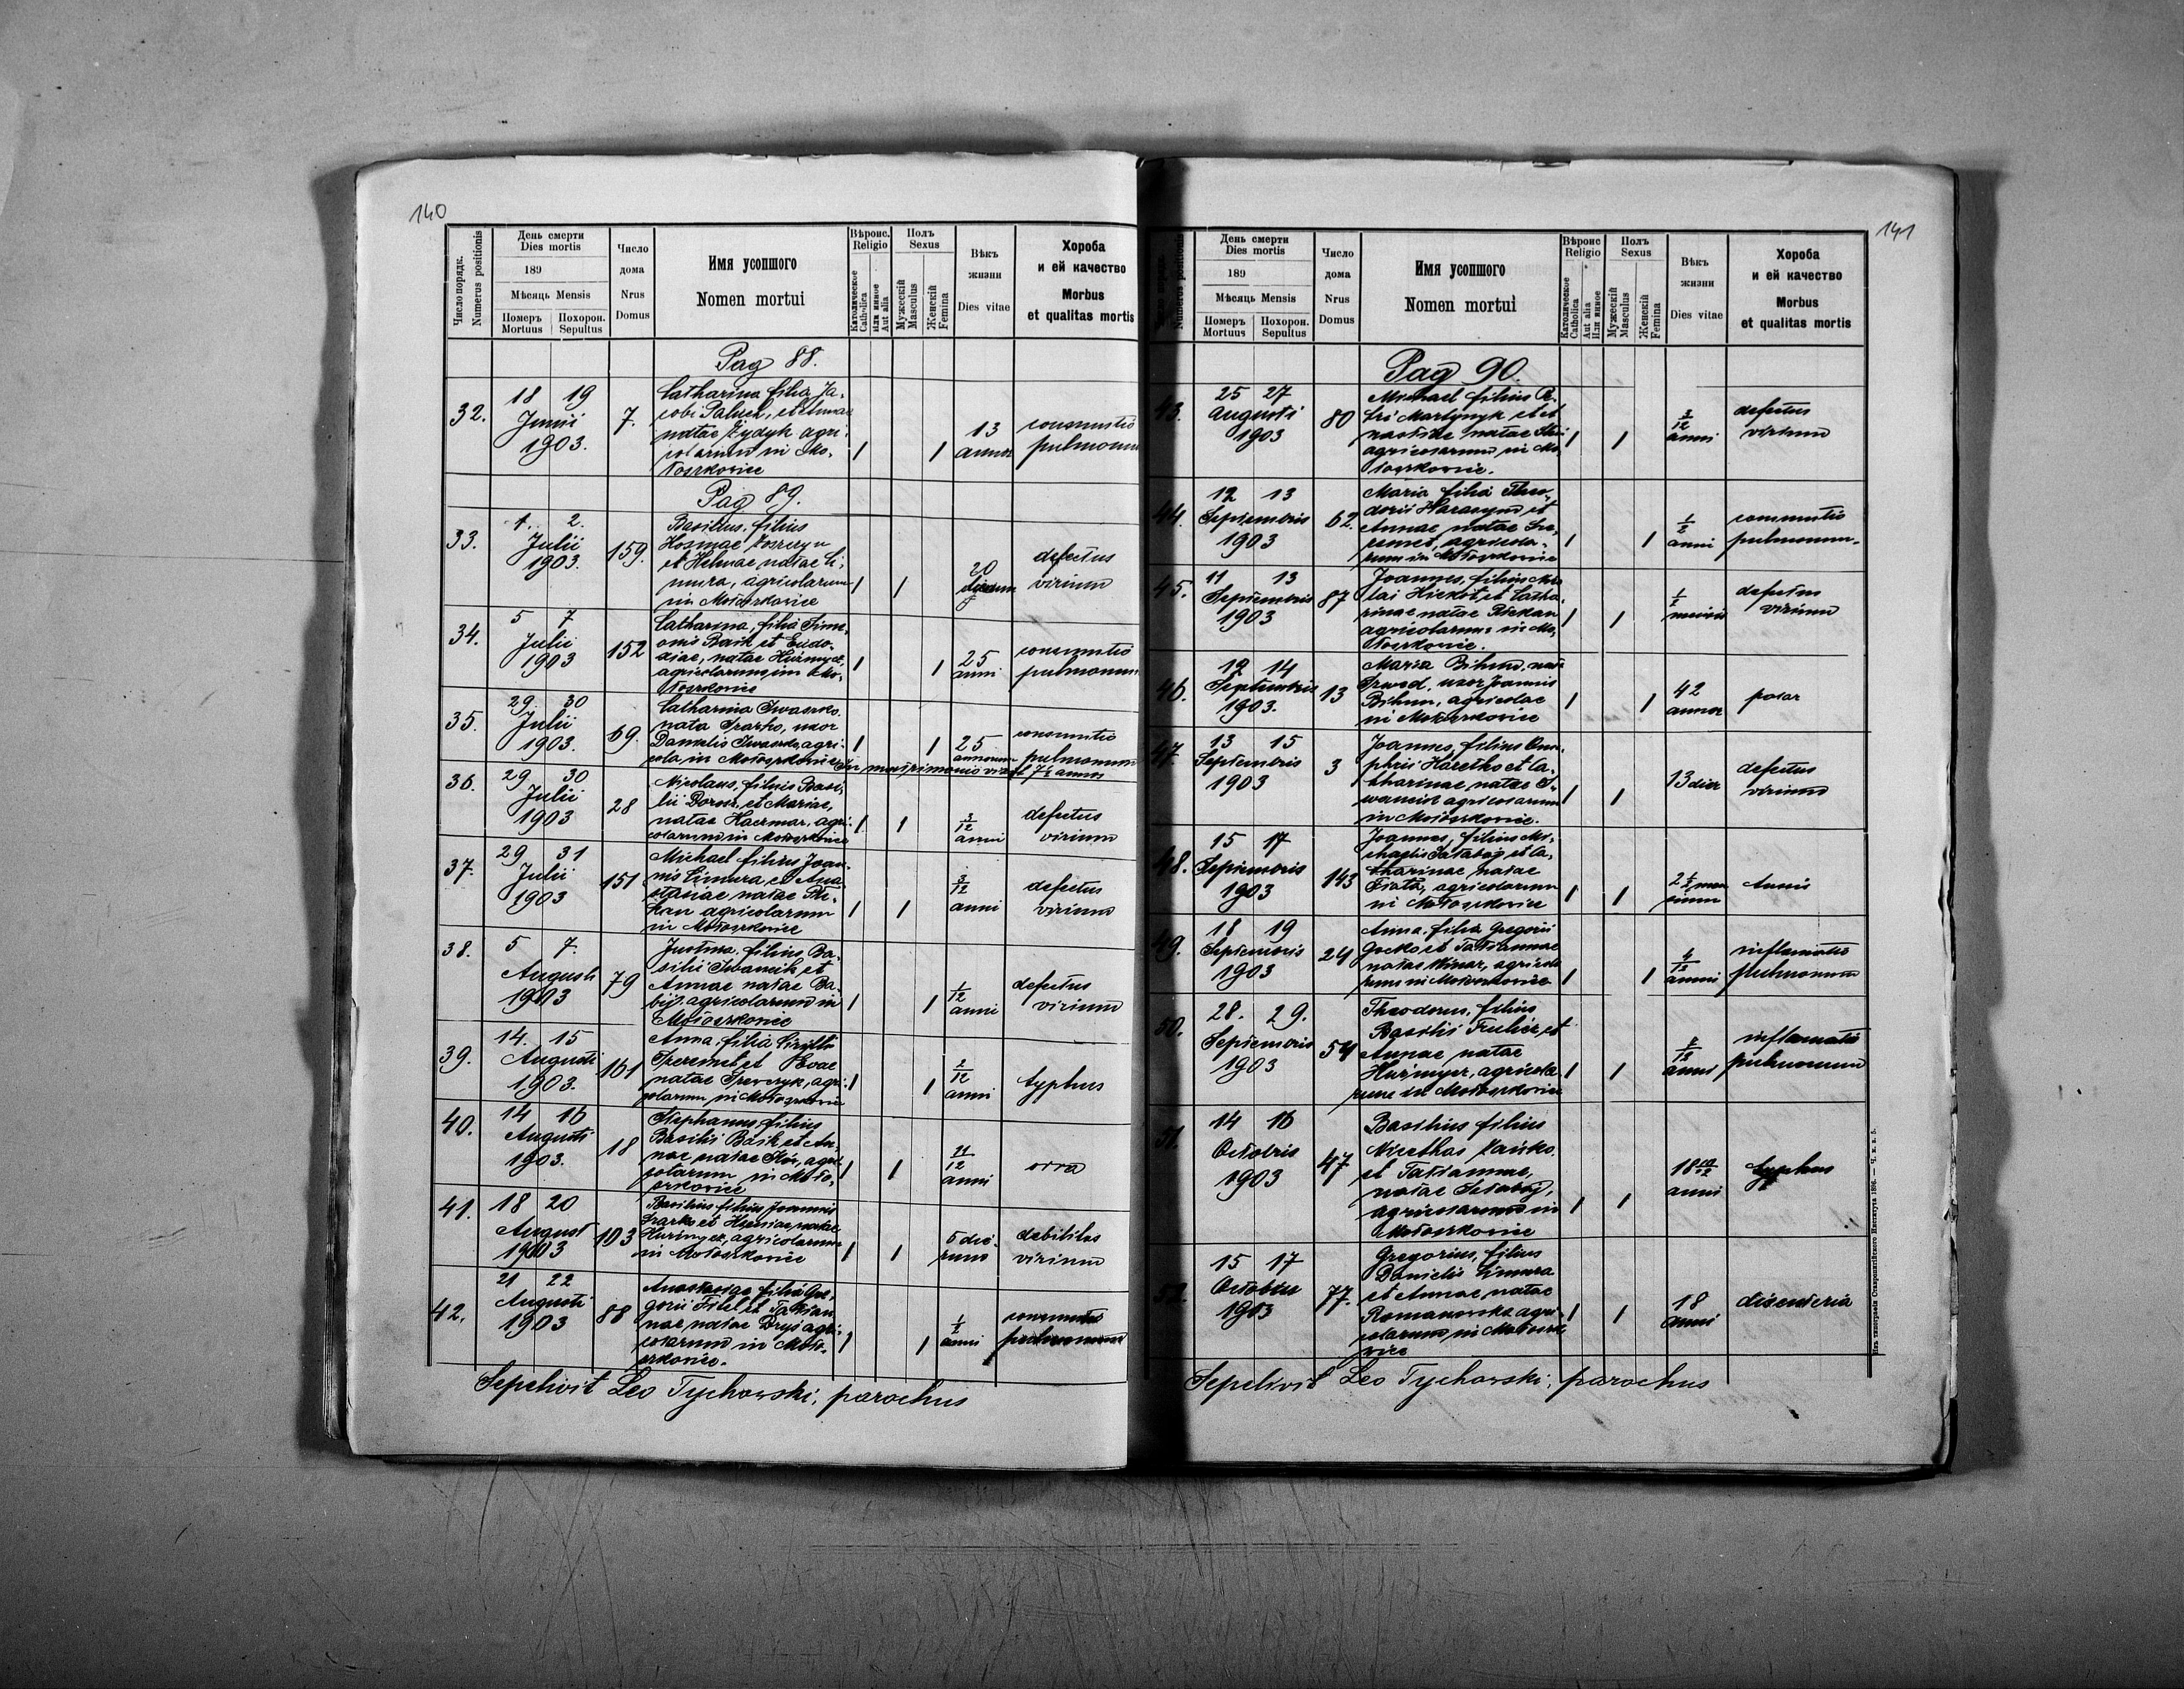 140
Число порядк. Numerus positionis
День смерти
Dies mortis
189
Мѣсяць Mensis
Померъ Mortuus
Похорон. Sepultus
Число дома
Nrus Domus
Имя усопшого
Nomen mortui
Вѣроис.
Religio
Католическое Catholica
или инное Aut alia
Полъ
Sexus
Мужескій Masculus
Женскій Femina
Вѣкъ жизни
Dies vitae
Хороба
и ей качество
Morbus
et qualitas mortis
Pag 88.
32.
18 19
Junii
1903.
7.
Catharina filia Ja-
cobi Paluch, et Annae
natae Żydyk agri-
colarum in Mo-
łoszkowice
1
1
13
annor
consumtio
pulmonum
Pag 89.
33.
1. 2.
Julii
1903.
159.
Basilius, filius
Kosmae
et Helenae natae Ci-
mura, agricolarum
in Mołoszkowice
1
1
20
dierum
defectus
virium
34.
5 7
Julii
1903
152
Catharina, filia Sime-
onis Baik et Eudo-
xiae, natae
agricolarum in Mo-
łoszkowice
1
1
25
anni
consumtio
pulmonum
35.
29. 30
Julii
1903.
69.
Catharina Iwaszko
nata Szarko, uxor
Danielis Iwaszko, agri-
cola, in Mołoszkowice
1
1
25
annorum
consumtio
pulmonum
In matrimonio vixit 7½ annos
36.
29 30
Julii
1903
28
Nicolaus, filius Basi-
lii Dorosz, et Mariae,
natae Kaczmar, agri-
colarum in Mołoszkowice
1
1
3/12
anni
defectus
virium
37.
29 31
Julii
1903
151
Michael filius Joan-
nis Cimura et Ana-
stasiae natae
agricolarum
in Mołoszkowice
1
1
3/12
anni
defectus
virium
38.
5 7.
Augusti
1903
79
Justina, filius Ba-
silii Iwancik et
Annae natae Ba-
bij, agricolarum in
Mołoszkowice
1
1
1/12
anni
defectus
virium
39.
14. 15
Augusti
1903.
161
Anna, filia Cirylli
Szeremet et Evae
natae Szewczyk, agri-
colarum in Mołoszkowice
1
1
2/12
anni
typhus
40.
14 16
Augusti
1903.
18
Stephanus filius
Basilii Baik et An-
nae natae Kós, agri-
colarum in Moło-
szkowice
1
1
11/12
anni
41.
18 20
August
1903
103
Basilius, filius Joannis
Szarko et natae
agricolarum
in Mołoszkowice
1
1
5 die-
rum
debilitas
virium
42.
21 22
Augusti
1903
88
Anastasiae filia Gre-
gorii Fitel et Tatian-
nae natae Dryś agri-
colarum in Moło-
szkowice.
1
1
1/2
anni
consumtio
pulmonum
Sepelivit Leo Tychowski, parochus
141
Numerus positionis
День смерти
Dies mortis
189
Мѣсяць Mensis
Померъ Mortuus
Похорон. Sepultus
Число дома
Nrus Domus
Имя усопшого
Nomen mortui
Вѣроис
Religio
Католическое Catholica
Aut alia или инное
Полъ
Sexus
Мужескій Masculus
Женскій Femina
Вѣкъ жизни
Dies vitae
Хороба
и ей качество
Morbus
et qualitas mortis
Pag 90.
43.
25 27
Augusti
1903
80
Michael filius Pe-
tri Martynyk et A-
nastasiae natae
agricolarum in Mo-
łoszkowice.
1
1
3/12
anni
defectus
virium
44.
12 13
Septembris
1903
62.
Maria filia Theo-
dorii Harasym et
Annae natae Sze-
remet, agricola-
rum in Mołoszkowice
1
1
1/2
anni
consumtio
pulmonum.
45.
11 13
Septembris
1903
87
Joannes, filius
et Catha-
rinae natae
agricolarum in Mo-
łoszkowice.
1
1
1/2
defectus
virium
46.
12 14
Septembris
1903.
13
Maria Bihun, nata
uxor Joannis
Bihun, agricolae
in Mołoszkowice
1
1
42
annor
47.
13 15
Septembris
1903
3
Joannes, filius Onu-
phrii Haretko et Ca-
tharinae natae I-
wancik agricolarum
in Mołoszkowice.
1
1
13 dier
defectus
virium
48.
15 17
Septembris
1903
143
Joannes, filius Mi-
chaelis Sałabaj et Ca-
tharinae natae
agricolarum
in Mołoszkowice
1
1
49.
18 19
Septembris
1903
24
Anna, filia Gregorii
Gocko et Tatiannae
natae Winar, agricola
rum in Mołoszkowice
1
1
4/12
anni
inflamatio
pulmonum
50.
28. 29.
Septembris
1903
54
Theodorus, filius
Basilii et
Annae natae
agricola
rum in Mołoszkowice
1
1
2/12
anni
inflamatio
pulmonum
51.
14 16
Octobris
1903
47
Basilius filius
Nicethas
et Tatiannae,
natae Sałabaj,
agricolarum in
Mołoszkowice
1
1
18 10/12
anni
typhus
52.
15 17
Octobris
1903
77.
Gregorius, filius
Danielis Cimura
et Annae natae
Romanowska agri-
colarum in Mołoszk
wice
1
1
18
anni
disenteria
Sepelivit Leo Tychowski, parochus
Изъ типографіи Ставропигійского Института 1896. — Ч. к. в. 5.